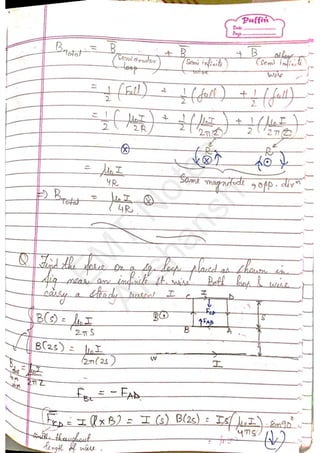 Puffin
Date
Page
B_total = B (semicircular loop) + B (semi infinite wire) + B other (semi infinite wire)
= 1/2 (Full) + 1/2 (full) + 1/2 (full)
= 1/2 (μ₀I/2R) + 1/2 (μ₀I/2πR) + 1/2 (μ₀I/2πR)
⊗ ⊗ ⊙
= μ₀I/4R Same magnitude, opp. dirⁿ
⇒ B_total = μ₀I/4R ⊗
Q Find the force on a sq. loop placed as shown in
fig near an infinite st. wire. Both loop & wire
carry a steady current I
B(s) = μ₀I/2πs
B(2s) = μ₀I/2π(2s)
B⊙ C I D F_CD F_AB B A s s
W I
F_BC = -F_AD
F_CD = I(l×B) = I(s) B(2s) = Is (μ₀I/4πs) sin90° (↓)
throughout
length of wire.